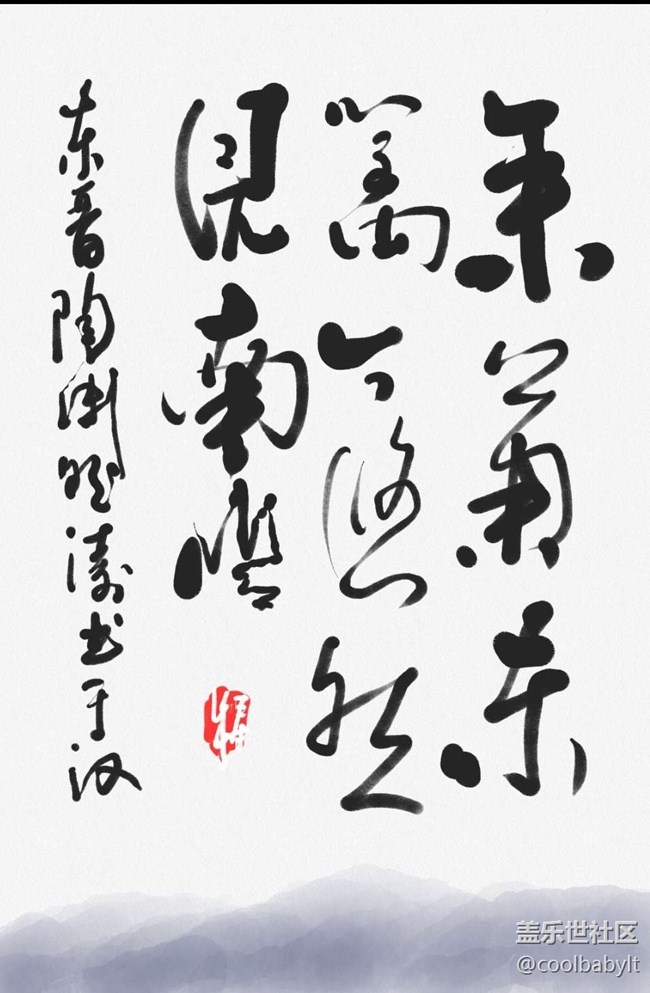 采菊东
篱下悠然
见南山
东晋陶渊明涛书于汉
盖乐世社区
@coolbabylt